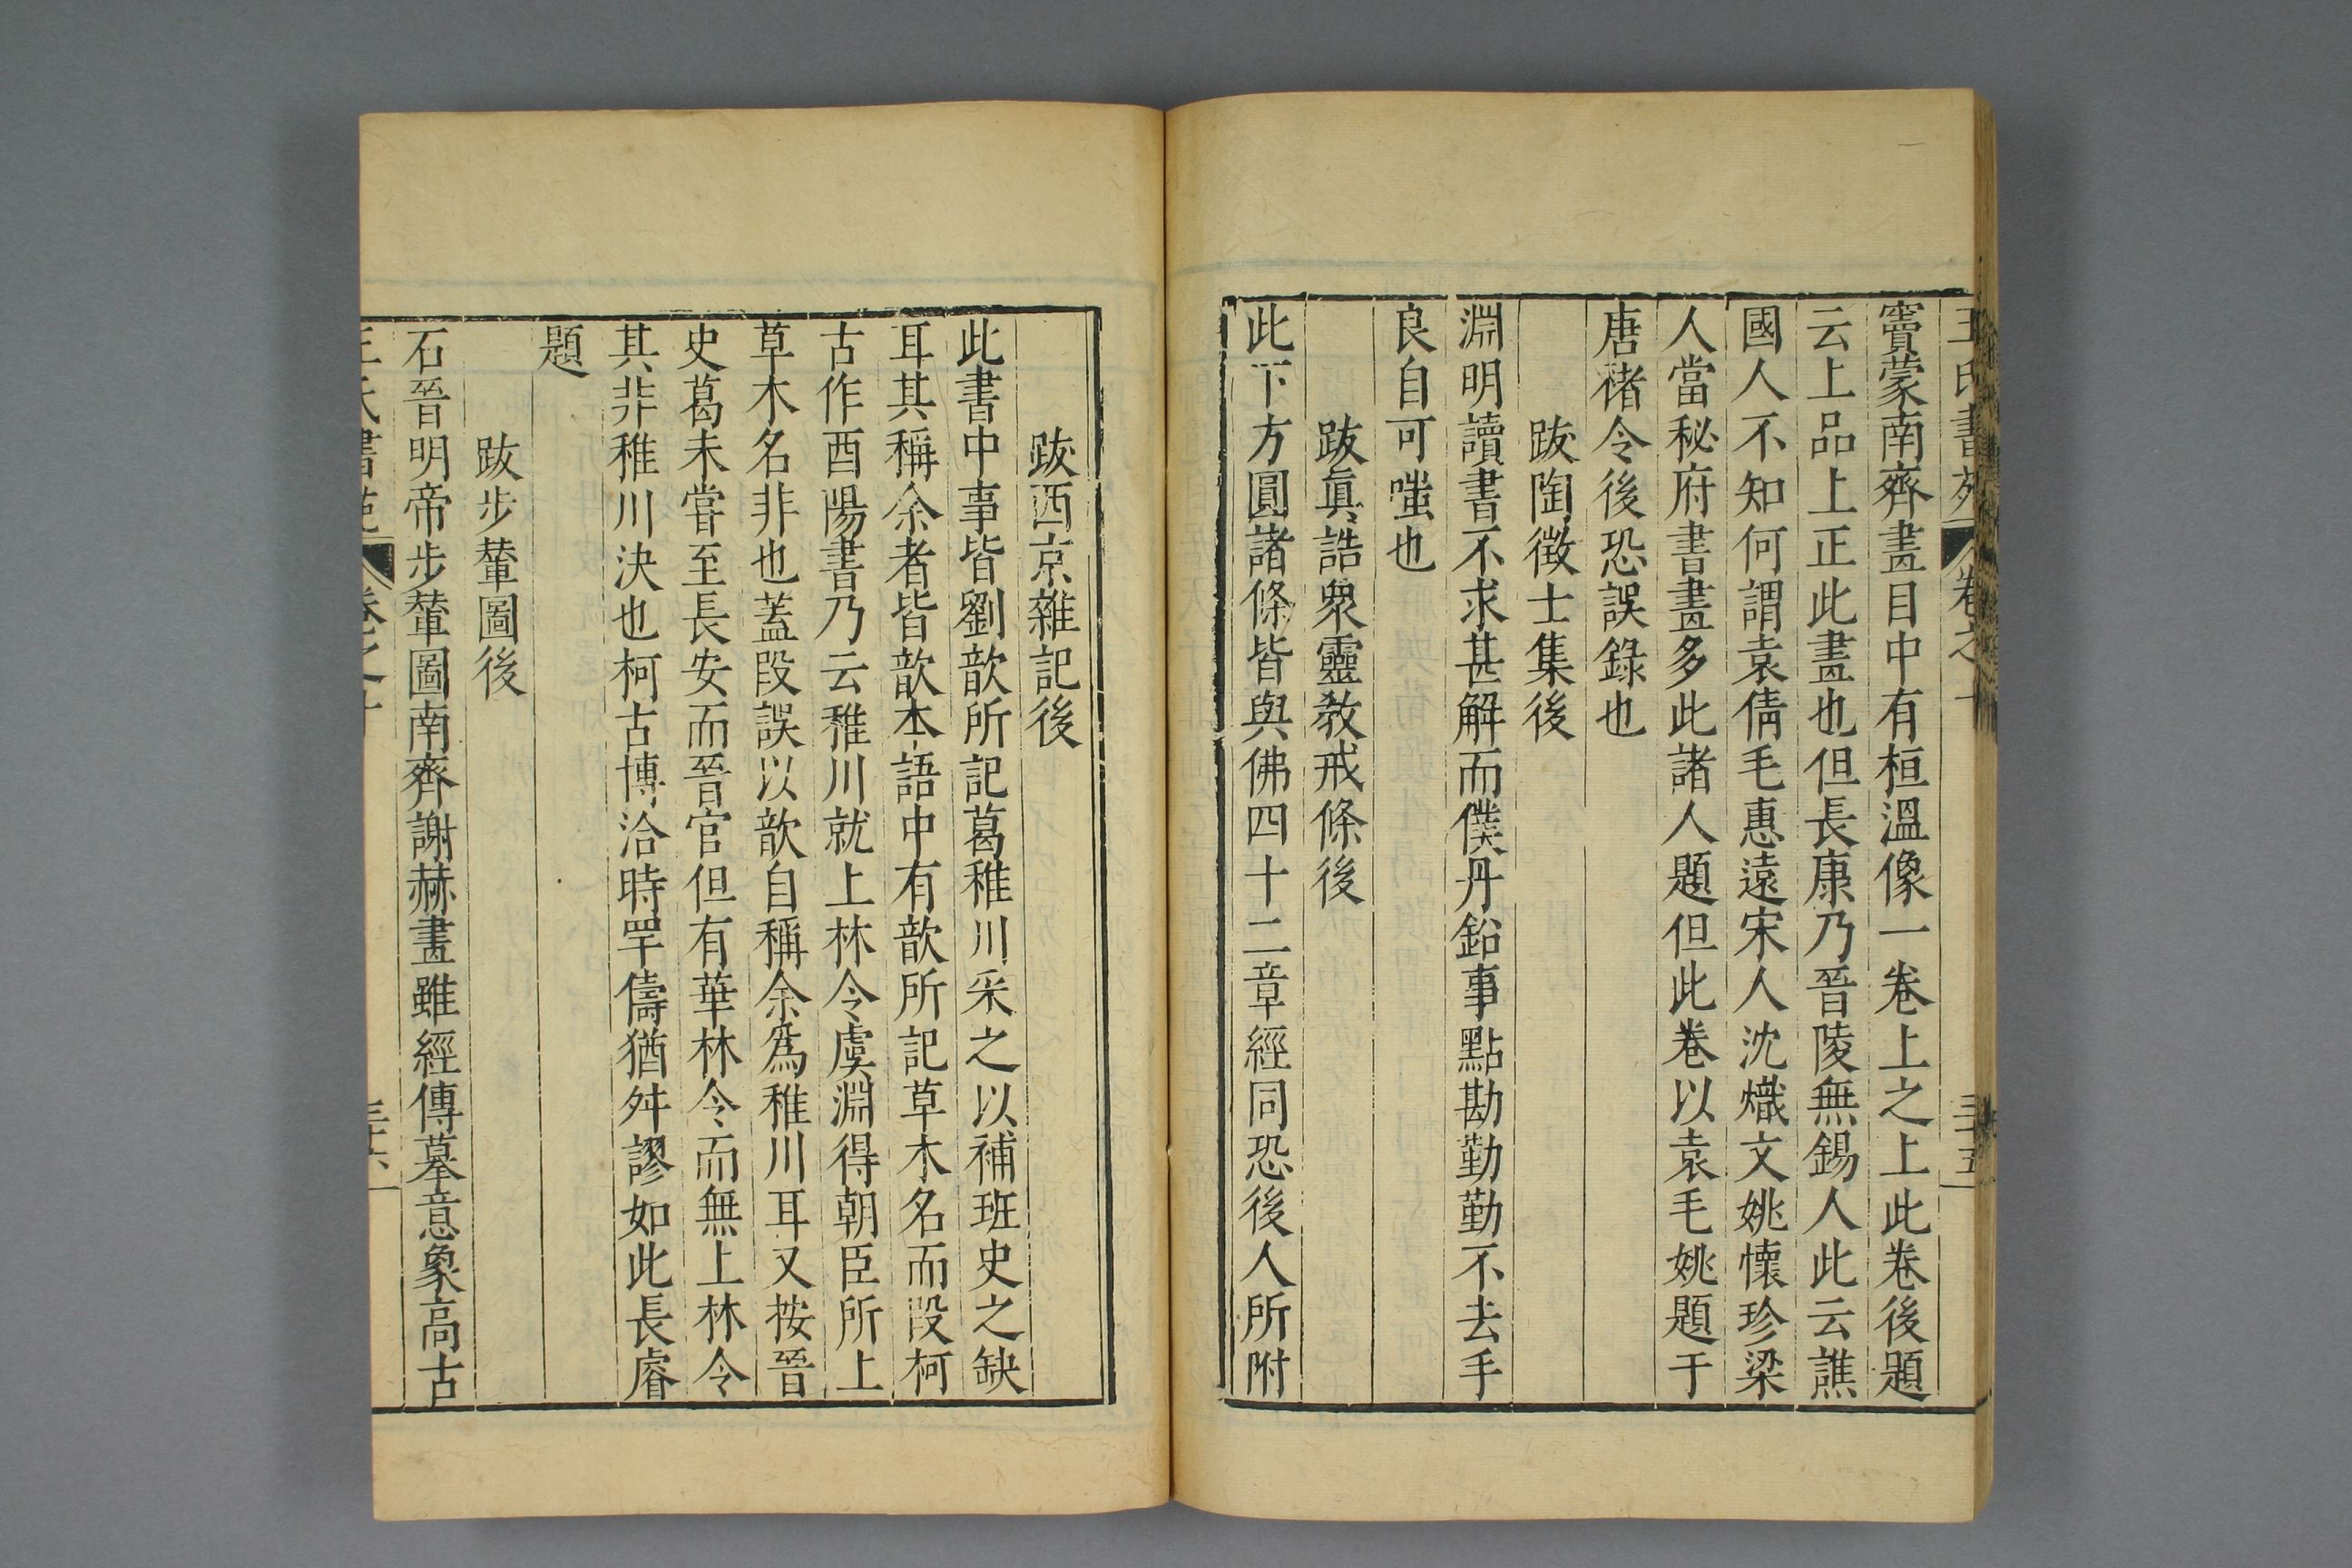 王氏書苑 卷之十 三十五
竇蒙南齊畫目中有桓溫像一卷上之上此卷後題
云上品上正此畫也但長康乃晉陵無錫人此云譙
國人不知何謂袁倩毛惠遠宋人沈熾文姚懷珍梁
人當秘府書畫多此諸人題但此卷以袁毛姚題于
唐褚令後恐誤錄也
跋陶徵士集後
淵明讀書不求甚解而僕丹鉛事點勘勤勤不去手
良自可嗤也
跋眞誥衆靈教戒條後
此下方圓諸條皆與佛四十二章經同恐後人所附
跋西京雜記後
此書中事皆劉歆所記葛稚川采之以補班史之缺
耳其稱余者皆歆本語中有歆所記草木名而段柯
古作酉陽書乃云稚川就上林令虞淵得朝臣所上
草木名非也蓋段誤以歆自稱余爲稚川耳又按晉
史葛未嘗至長安而晉官但有華林令而無上林令
其非稚川決也柯古博洽時罕儔猶舛謬如此長睿
題
跋步輦圖後
石晉明帝步輦圖南齊謝赫畫雖經傳摹意象高古
王氏書苑 卷之十 三十六